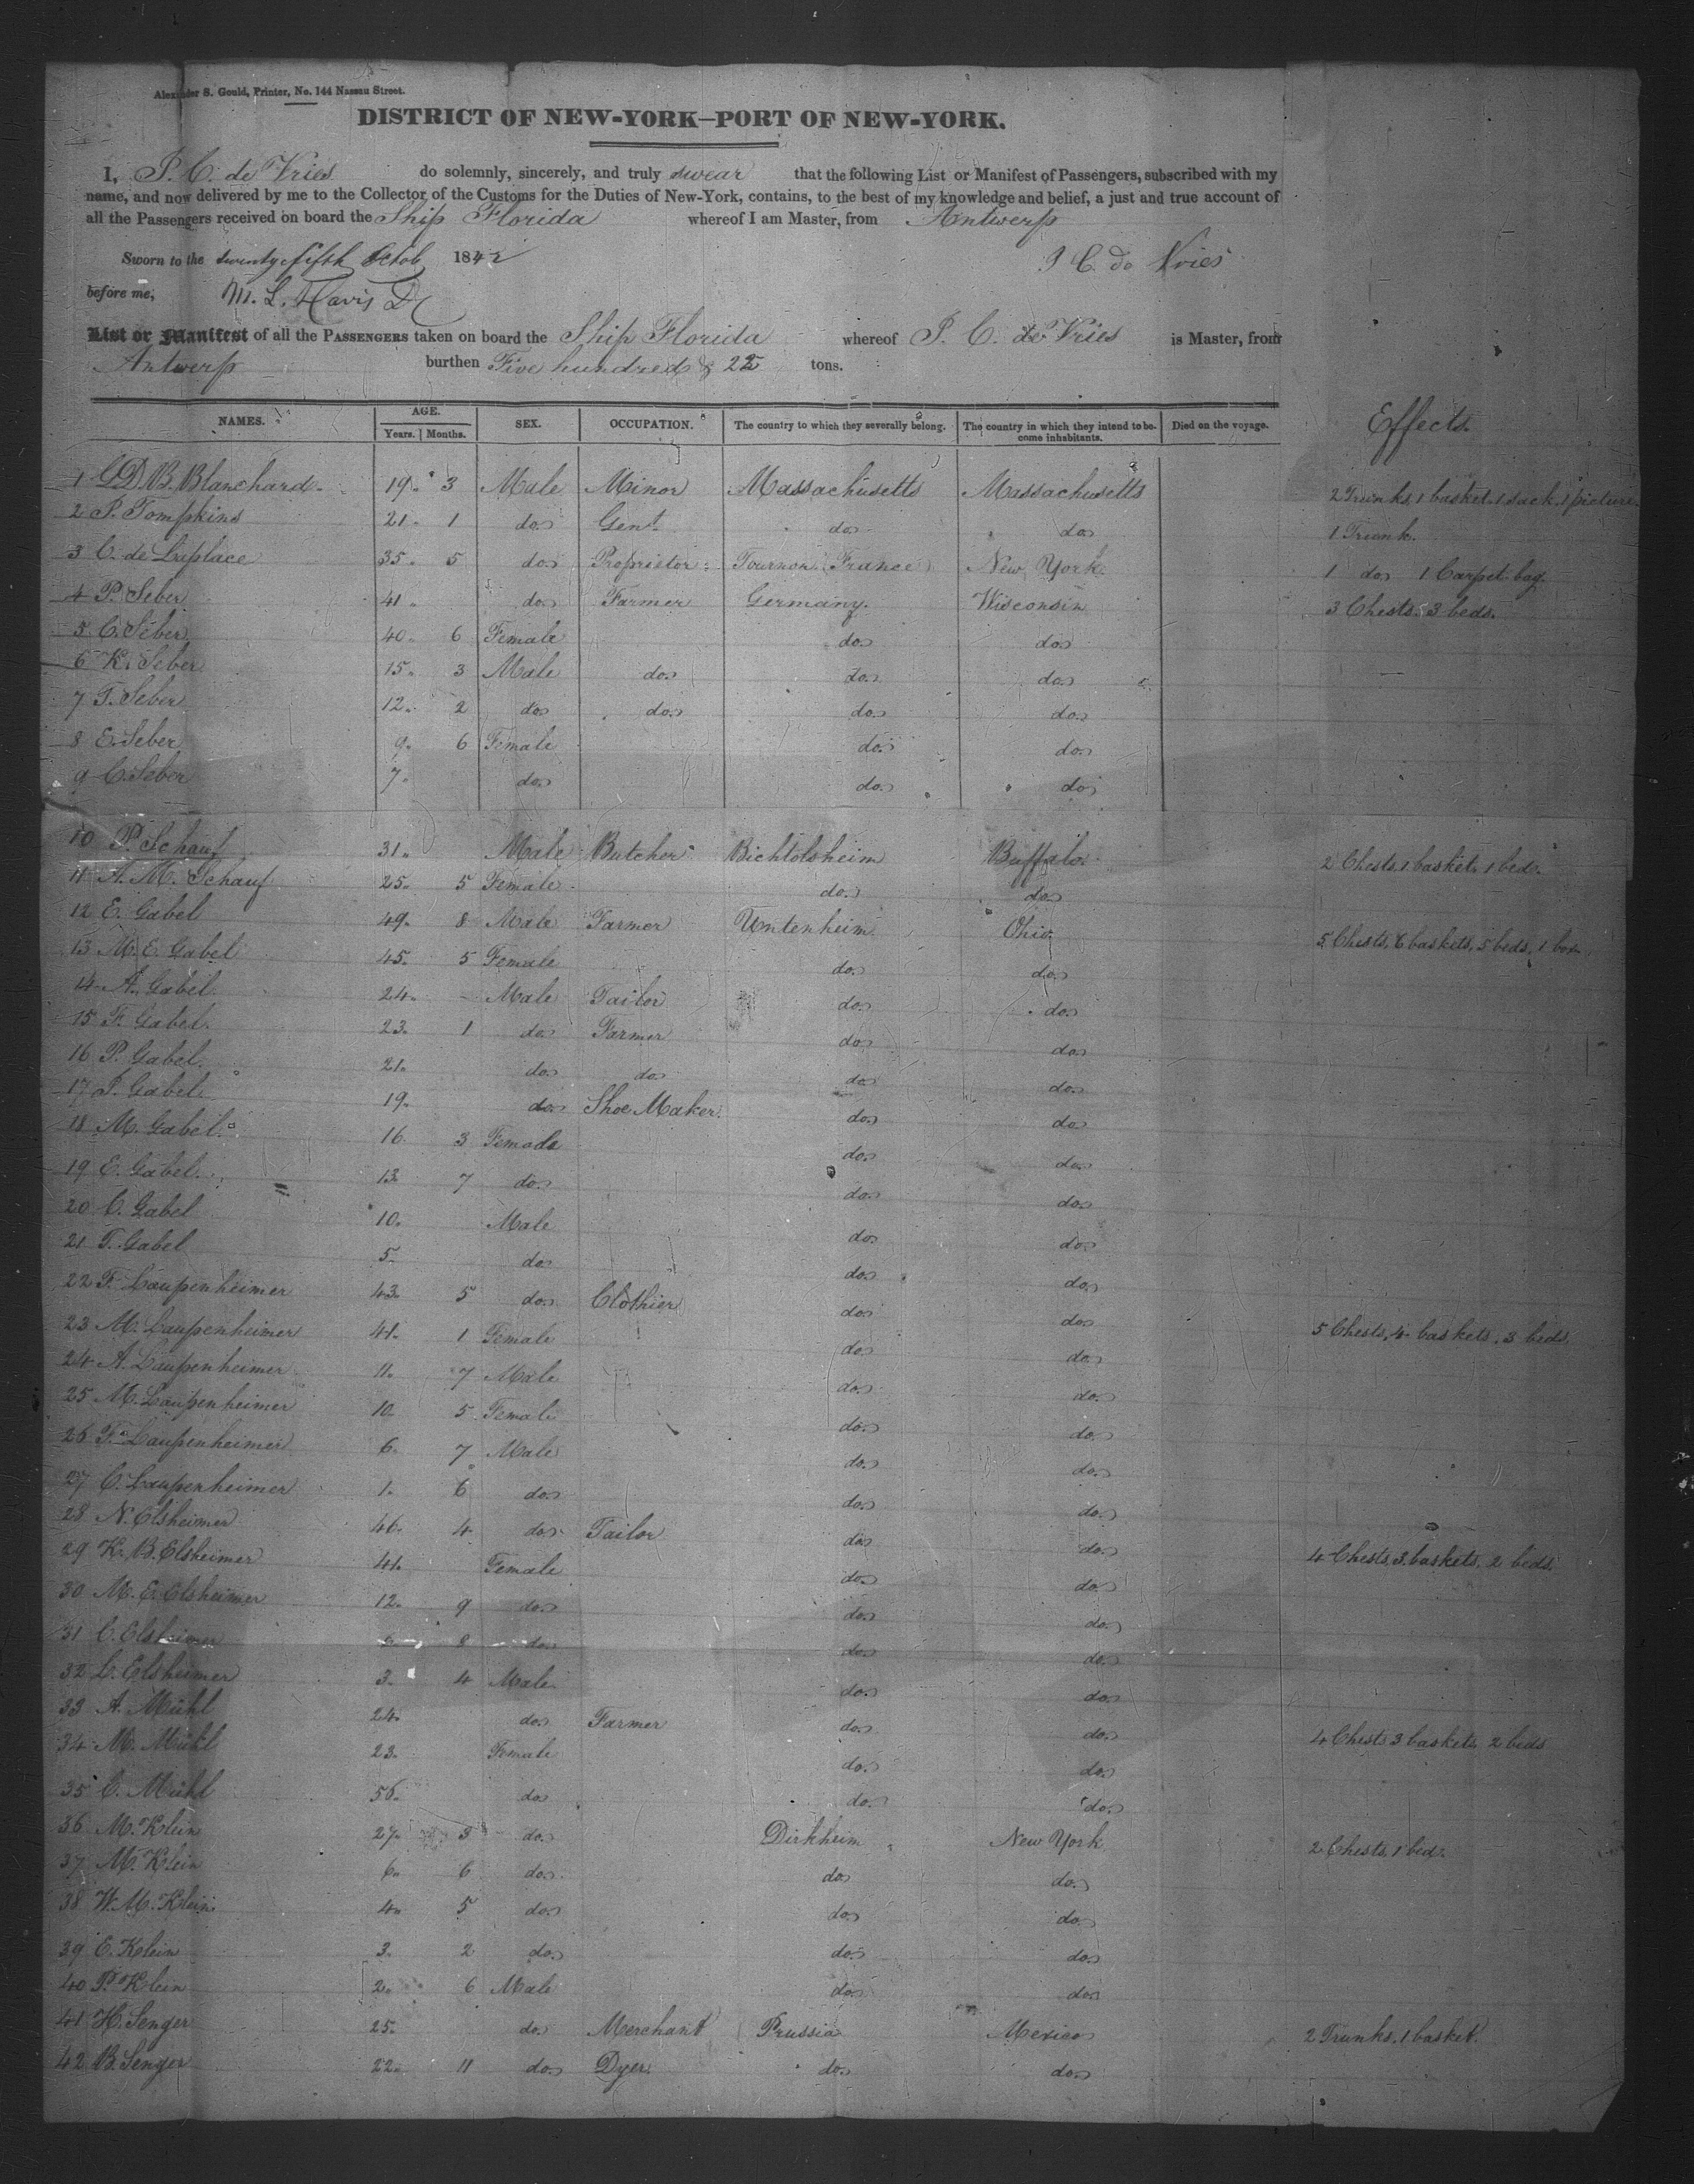 Alexander S. Gould, Printer, No. 144 Nassau Street.
DISTRICT OF NEW-YORK—PORT OF NEW-YORK.
I, P. C. de Vries do solemnly, sincerely, and truly swear that the following List or Manifest of Passengers, subscribed with my
name, and now delivered by me to the Collector of the Customs for the Duties of New-York, contains, to the best of my knowledge and belief, a just and true account of
all the Passengers received on board the Ship Florida whereof I am Master, from Antwerp
Sworn to the twenty fifth Octob 1842 P C. de Vries
before me, M. L. Davis
List or Manifest of all the PASSENGERS taken on board the Ship Florida whereof P. C. de Vries is Master, from
Antwerp burthen Five hundred & 22 tons.
NAMES. AGE. Years. Months. SEX. OCCUPATION. The country to which they severally belong. The country in which they intend to become inhabitants. Died on the voyage. Effects.
1 G D. B. Blanchard 19 3 Male Minor Massachusetts Massachusetts 2 Trunks, 1 basket, 1 sack, 1 picture
2 P. Tompkins 21 1 do. Gent. do. do. 1 Trunk.
3 C. de Laplace 35 5 do. Proprietor Tournon (France) New York 1 do. 1 Carpet bag.
4 P. Seber 41 do. Farmer Germany. Wisconsin 3 Chests. 3 beds.
5 C. Seber 40 6 Female do. do.
6 K. Seber 15 3 Male do. do. do.
7 T. Seber 12 2 do. do. do. do.
8 E. Seber 9 6 Female do. do.
9 C. Seber 7 do. do. do.
10 P. Schauf 31 Male Butcher Bichtolsheim Buffalo. 2 Chests, 1 basket, 1 bed.
11 A. M. Schauf 25 5 Female do. do.
12 E. Gabel 49 8 Male Farmer Untenheim Ohio. 5 Chests, 6 baskets, 5 beds, 1 box
13 M. E. Gabel 45 5 Female do. do.
14 A. Gabel 24 Male Tailor do. do.
15 F. Gabel. 23 1 do. Farmer do. do.
16 P. Gabel. 21 do. do. do. do.
17 P. Gabel. 19. do. Shoe Maker. do. do.
18 M. Gabel. 16 3 Female do. do.
19 E. Gabel. 13 7 do. do. do.
20 C. Gabel 10. Male do. do.
21 T. Gabel 5 do. do. do.
22 F. Laupenheimer 43 5 do. Clothier do. do.
23 M. Laupenheimer 41 1 Female do. do. 5 Chests, 4 baskets, 3 beds.
24 A. Laupenheimer 11. 7 Male do. do.
25 M. Laupenheimer 10 5 Female do. do.
26 F. Laupenheimer 6. 7 Male do. do.
27 C. Laupenheimer 1. 6 do. do. do.
28 N. Elsheimer 46 4 do. Tailor do. do.
29 K. B. Elsheimer 41. Female do. do. 4 Chests, 3 baskets, 2 beds.
30 M. E. Elsheimer 12. 9 do. do. do.
31 C. Elsheimer 8 do. do. do.
32 L. Elsheimer 3. 4 Male do. do.
33 A. Mühl 24 do. Farmer do. do.
34 M. Mühl 23. Female do. do. 4 Chests 3 baskets, 2 beds
35 C. Mühl 56. do. do. do.
36 M. Klein 27. 3 do. Dirkheim New York 2 Chests, 1 bed.
37 M. Klein 6. 6 do. do. do.
38 W. M. Klein 4. 5 do. do. do.
39 E. Klein 3. 2 do. do. do.
40 P. Klein 2. 6 Male do. do.
41 H. Senger 25. do. Merchant Prussia Mexico 2 Trunks, 1 basket.
42 B. Senger 22. 11 do. Dyer. do. do.